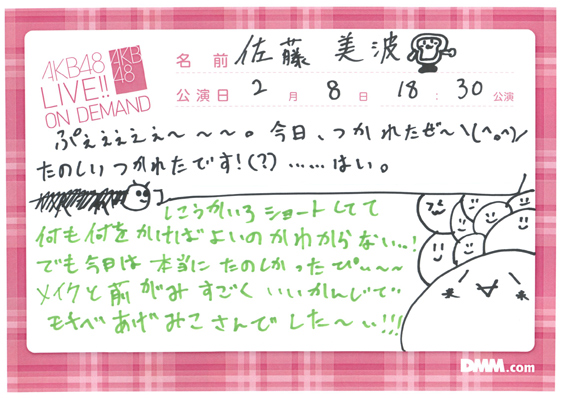 AKB48
LIVE!!
ON DEMAND
AKB
48
名前 佐藤 美波
公演日 2月 8日 18:30公演
ぷぇぇぇぇぇ〜〜〜。今日、つかれたぜ〜\(^o^)/
たのしいつかれたです!(?)……はい。
しこうかいろショートしてて
何も何をかけばよいのかわからない…!
でも今日は本当にたのしかったぴぃ〜〜
メイクと前がみすごくいいかんじで
モチベあげみこさんでした〜ぃ!!!
DMM.com